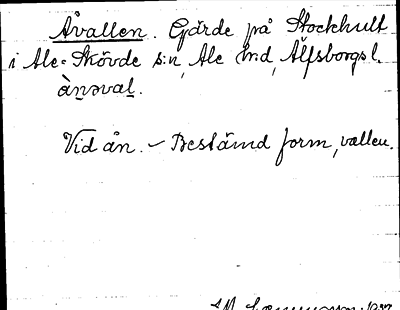 Åvallen. Gärde på Stockhult
i Ale-Skövde s:n, Ale h:d, Älfsborgs l.
ànəval.
Vid ån. – Bestämd form, vallen.